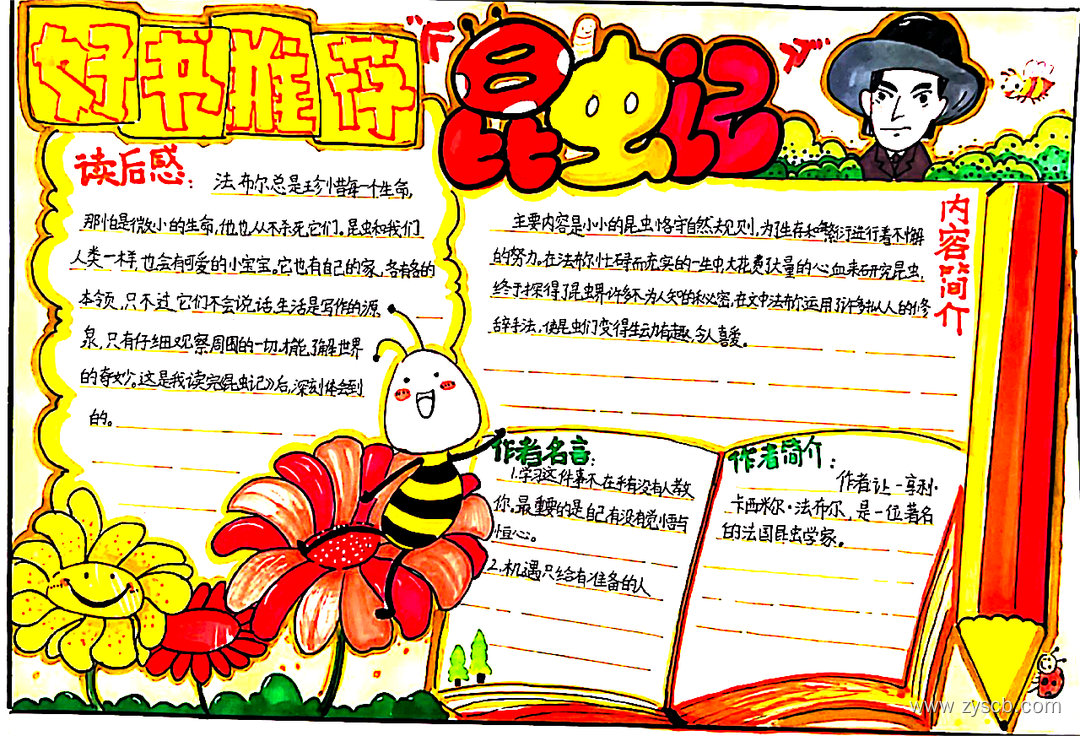 好书推荐
昆虫记
读后感：
法布尔总是珍惜每一个生命,
那怕是微小的生命,他也从不杀死它们。昆虫和我们
人类一样,也会有可爱的小宝宝。它也有自己的家、各有各的
本领,只不过它们不会说话,生活是写作的源
泉,只有仔细观察周围的一切,才能了解世界
的奇妙。这是我读完昆虫记》后,深刻体会到
的。
内容简介
主要内容是小小的昆虫恪守自然规则,为了生存和繁衍进行着不懈
的努力。在法布尔壮碍而充实的一生中,大花费了大量的心血来研究昆虫,
终于探得了昆虫界许多不为人知的秘密,在文中法布尔运用了许多拟人的修
辞手法,使昆虫们变得生动有趣,令人喜爱。
作者名言:
1.学习这件事不在乎有没有人教
你。最重要的是自己有没有觉悟与
恒心。
2.机遇只给有准备的人
作者简介:
作者让-亨利·
卡西米尔·法布尔,是一位著名
的法国昆虫学家。
www.zyscb.com